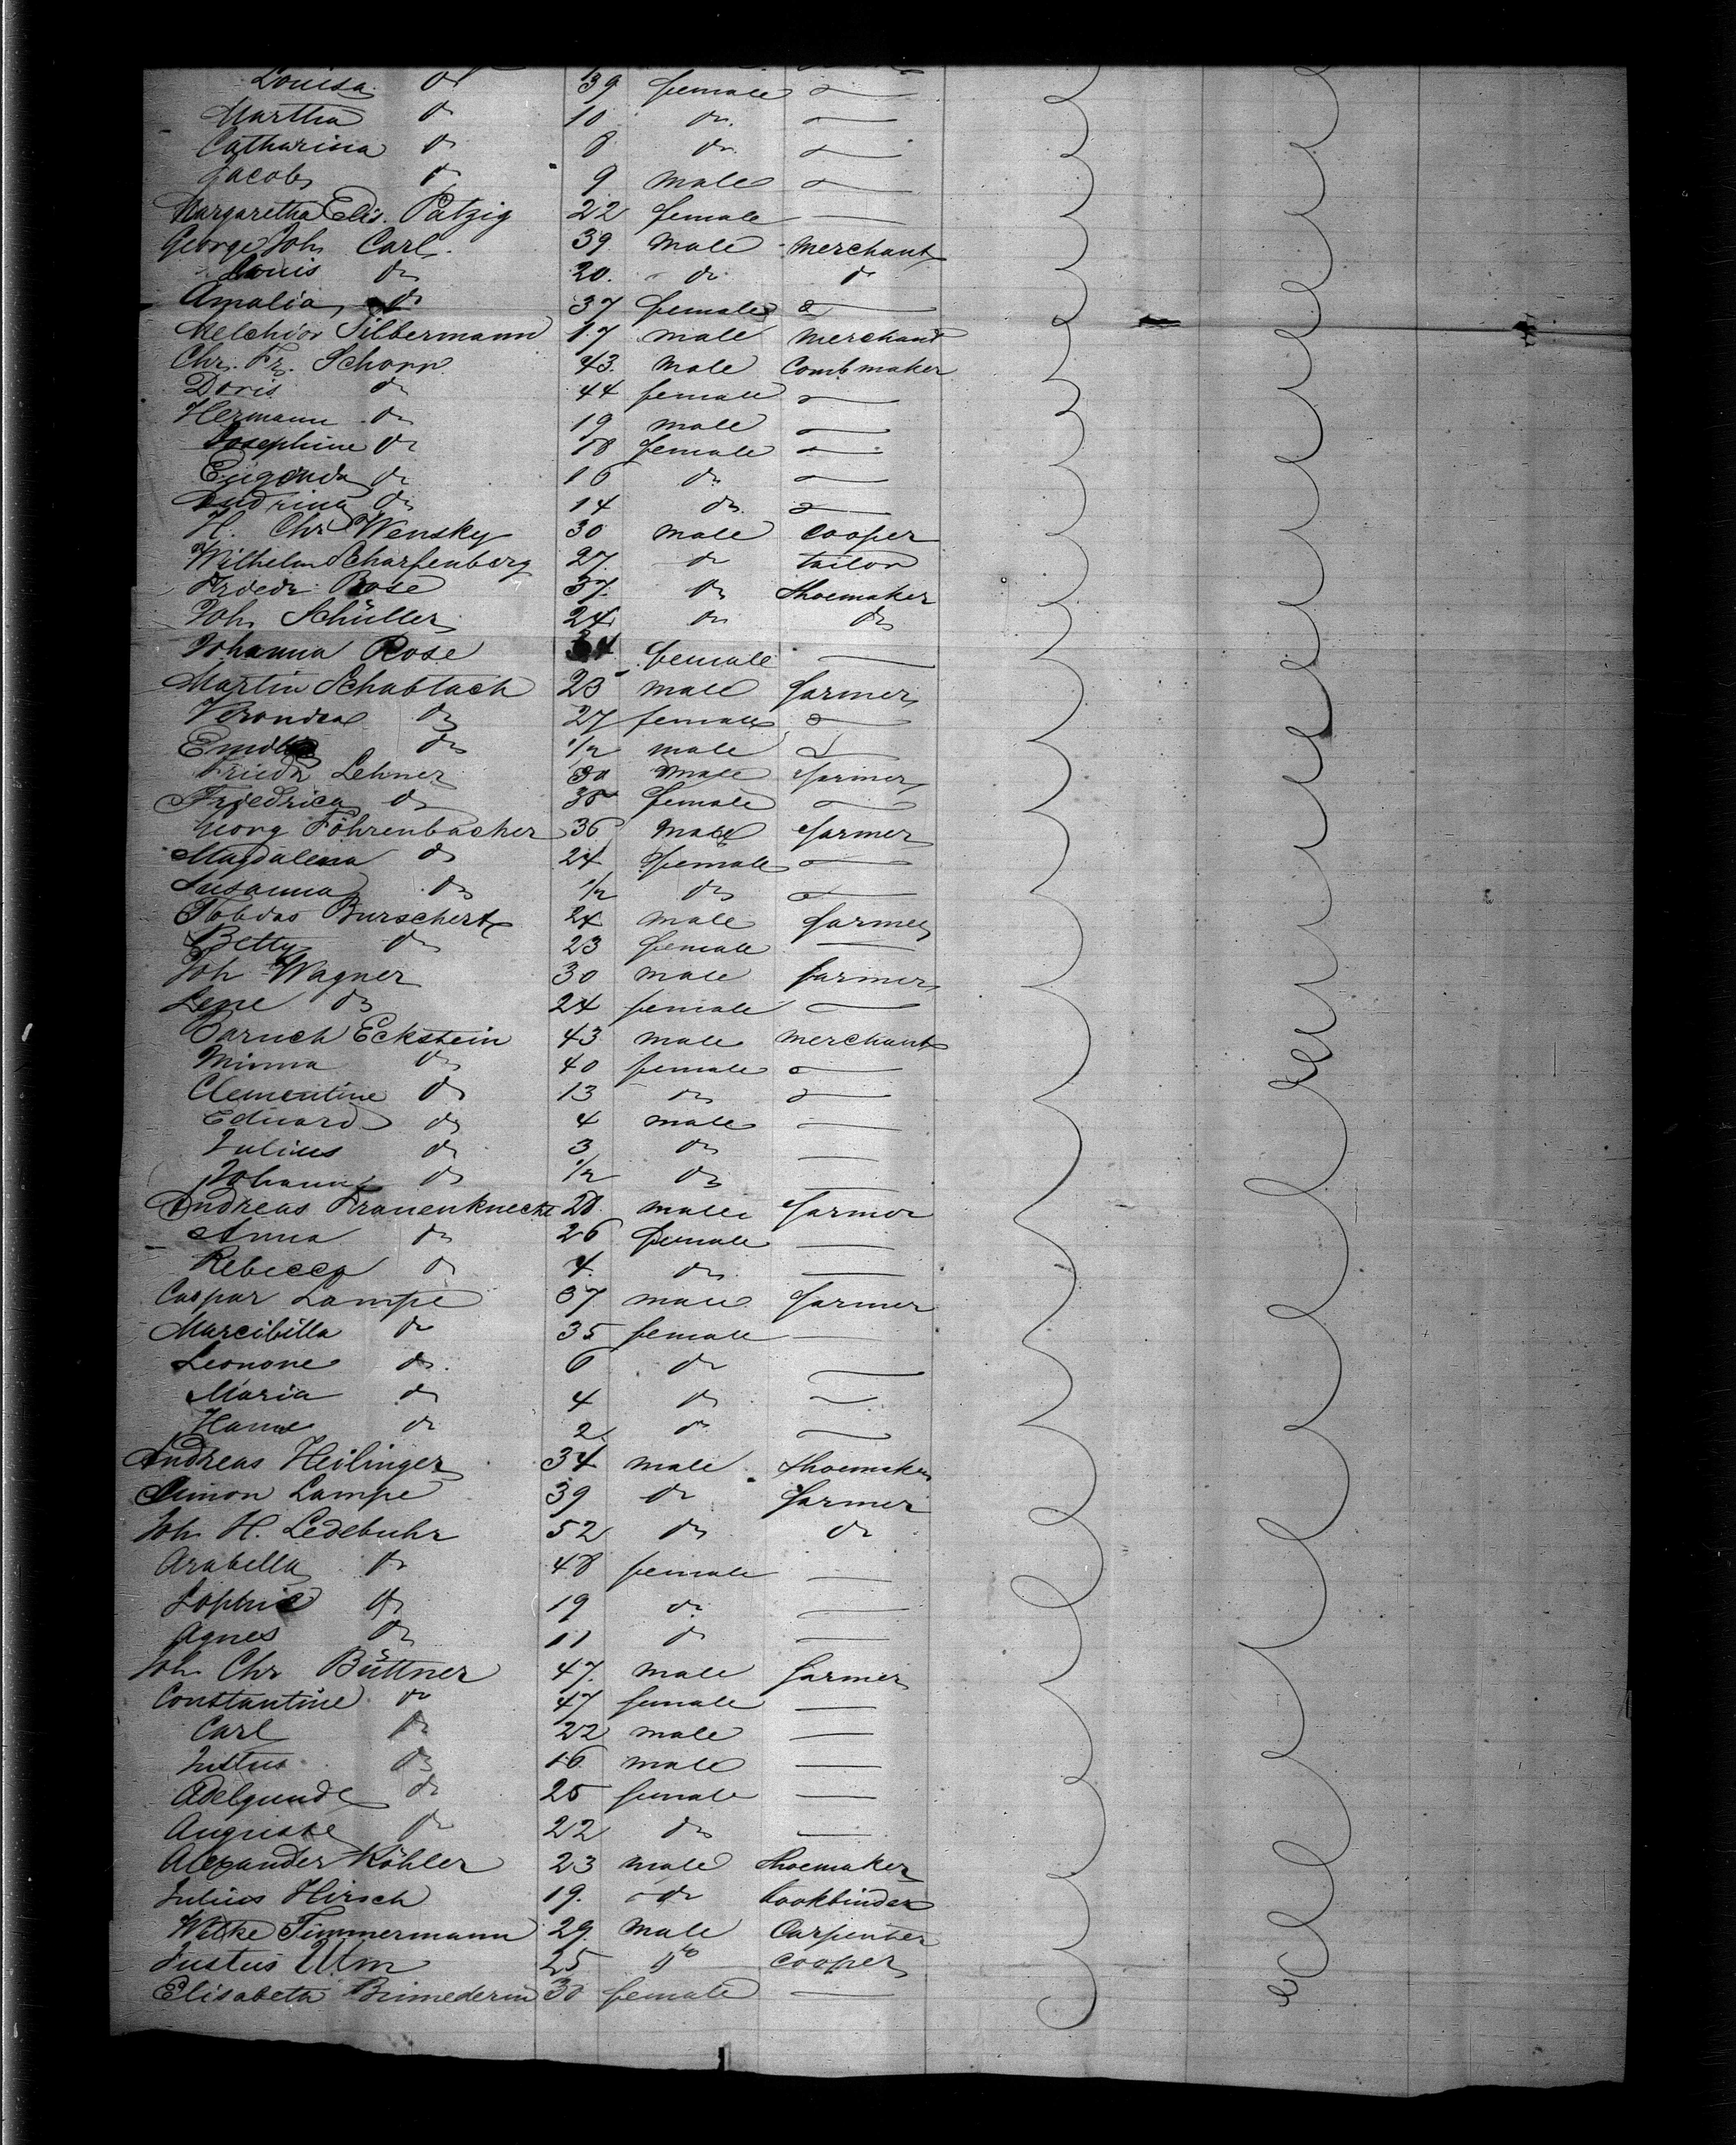 Louisa do 39 female —
Martha do 10 do —
Catharina do 8 do —
Jacob do 9 male —
Margaretha Elis. Patzig 22 female —
George Joh Carl 39 male merchant
Louis do 20 do do
Amalia do 37 female —
Melchior Silbermann 17 male merchant
Chr. Fr. Schorr 43 male Combmaker
Doris do 44 female —
Hermann do 19 male —
Josephine do 18 female —
Eugenda do 16 do —
do 14 do —
H. Chr Wensky 30 male Cooper
Wilhelm Scharfenberg 27 do tailor
Friedr Rose 37 do Shoemaker
Joh Schüller 24 do do
Johanna Rose female —
Martin Schablach 25 male farmer
Veronica do 27 female —
do 1/2 male —
Friedr Lehner 30 male farmer
Friedrica do 35 female —
Georg Föhrenbacher 36 male farmer
Magdalena do 24 female —
Susanna do 1/2 do —
Tobias Burschert 24 male farmer
Betty do 23 female —
Joh Wagner 30 male farmer
Lene do 24 female —
Baruch Eckstein 43 male merchant
Minna do 40 female —
Clementine do 13 do —
Eduard do 4 male —
Julius do 3 do —
Johann do 1/2 do —
Andreas Frauenknecht 28 male farmer
Anna do 26 female —
Rebecca do 4 do —
Caspar Lampe 37 male farmer
Marcibilla do 35 female —
Leonore do 6 do —
Maria do 4 do —
Hanne do 2 do —
Andreas Heilinger 34 male Shoemaker
Simon Lampe 39 do farmer
Joh H. Ledebuhr 52 do do
Arabella do 48 female —
Sophie do 19 do —
Agnes do 11 do —
Joh Chr Büttner 47 male farmer
Constantine do 47 female —
Carl do 22 male —
Justus do 16 male —
Adelgunde do 25 female —
Auguste do 22 do —
Alexander Köhler 23 male Shoemaker
Julius Hirsch 19 do bookbinder
Wilke Timmermann 29 male Carpenter
Justus Ulm 25 do cooper
Elisabeth 30 female —